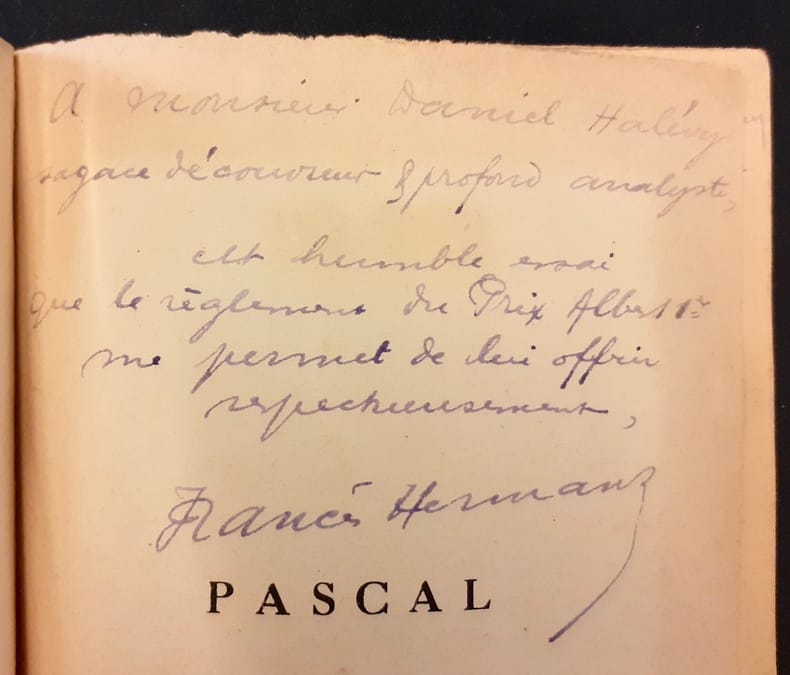 A monsieur Daniel Halévy
sagace découvreur & profond analyste,
cet humble essai
que le règlement du Prix Albert 1er
me permet de lui offrir
respectueusement,
Francis Hermans
PASCAL